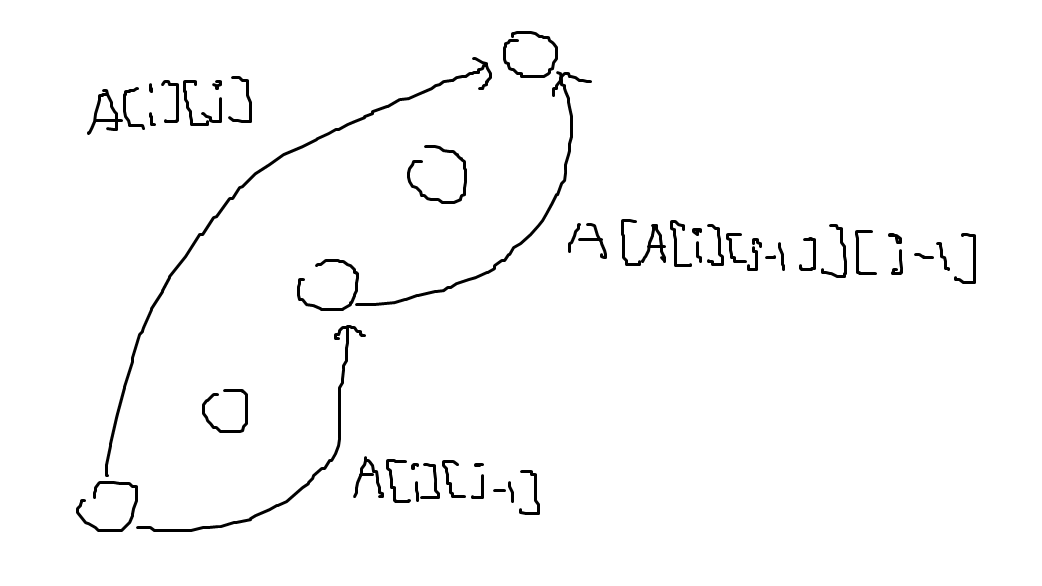 A[i][j]
A[A[i][j-1]][j-1]
A[i][j-1]